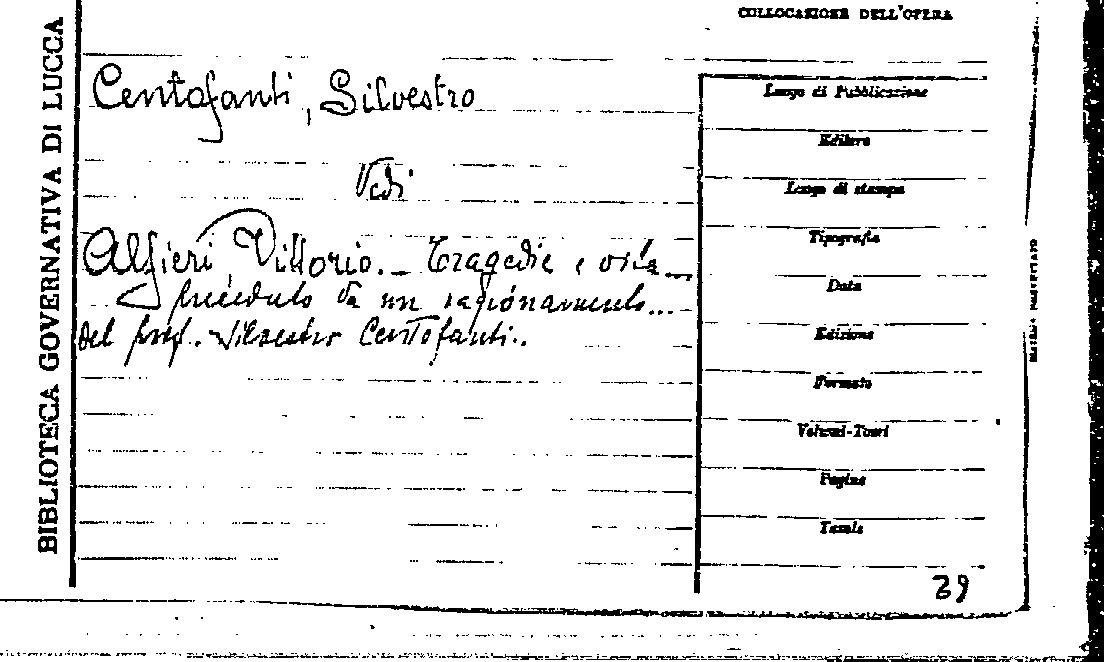 BIBLIOTECA GOVERNATIVA DI LUCCA
COLLOCAZIONE DELL'OPERA
Centofanti, Silvestro
Vedi
Alfieri, Vittorio. _ Tragedie e vita...
precedute da un ragionamento...
del prof. Silvestro Centofanti..
Luogo di Pubblicazione
Editore
Luogo di stampa
Tipografia
Data
Edizione
Formato
Volumi-Tomi
Pagine
Tavole
39